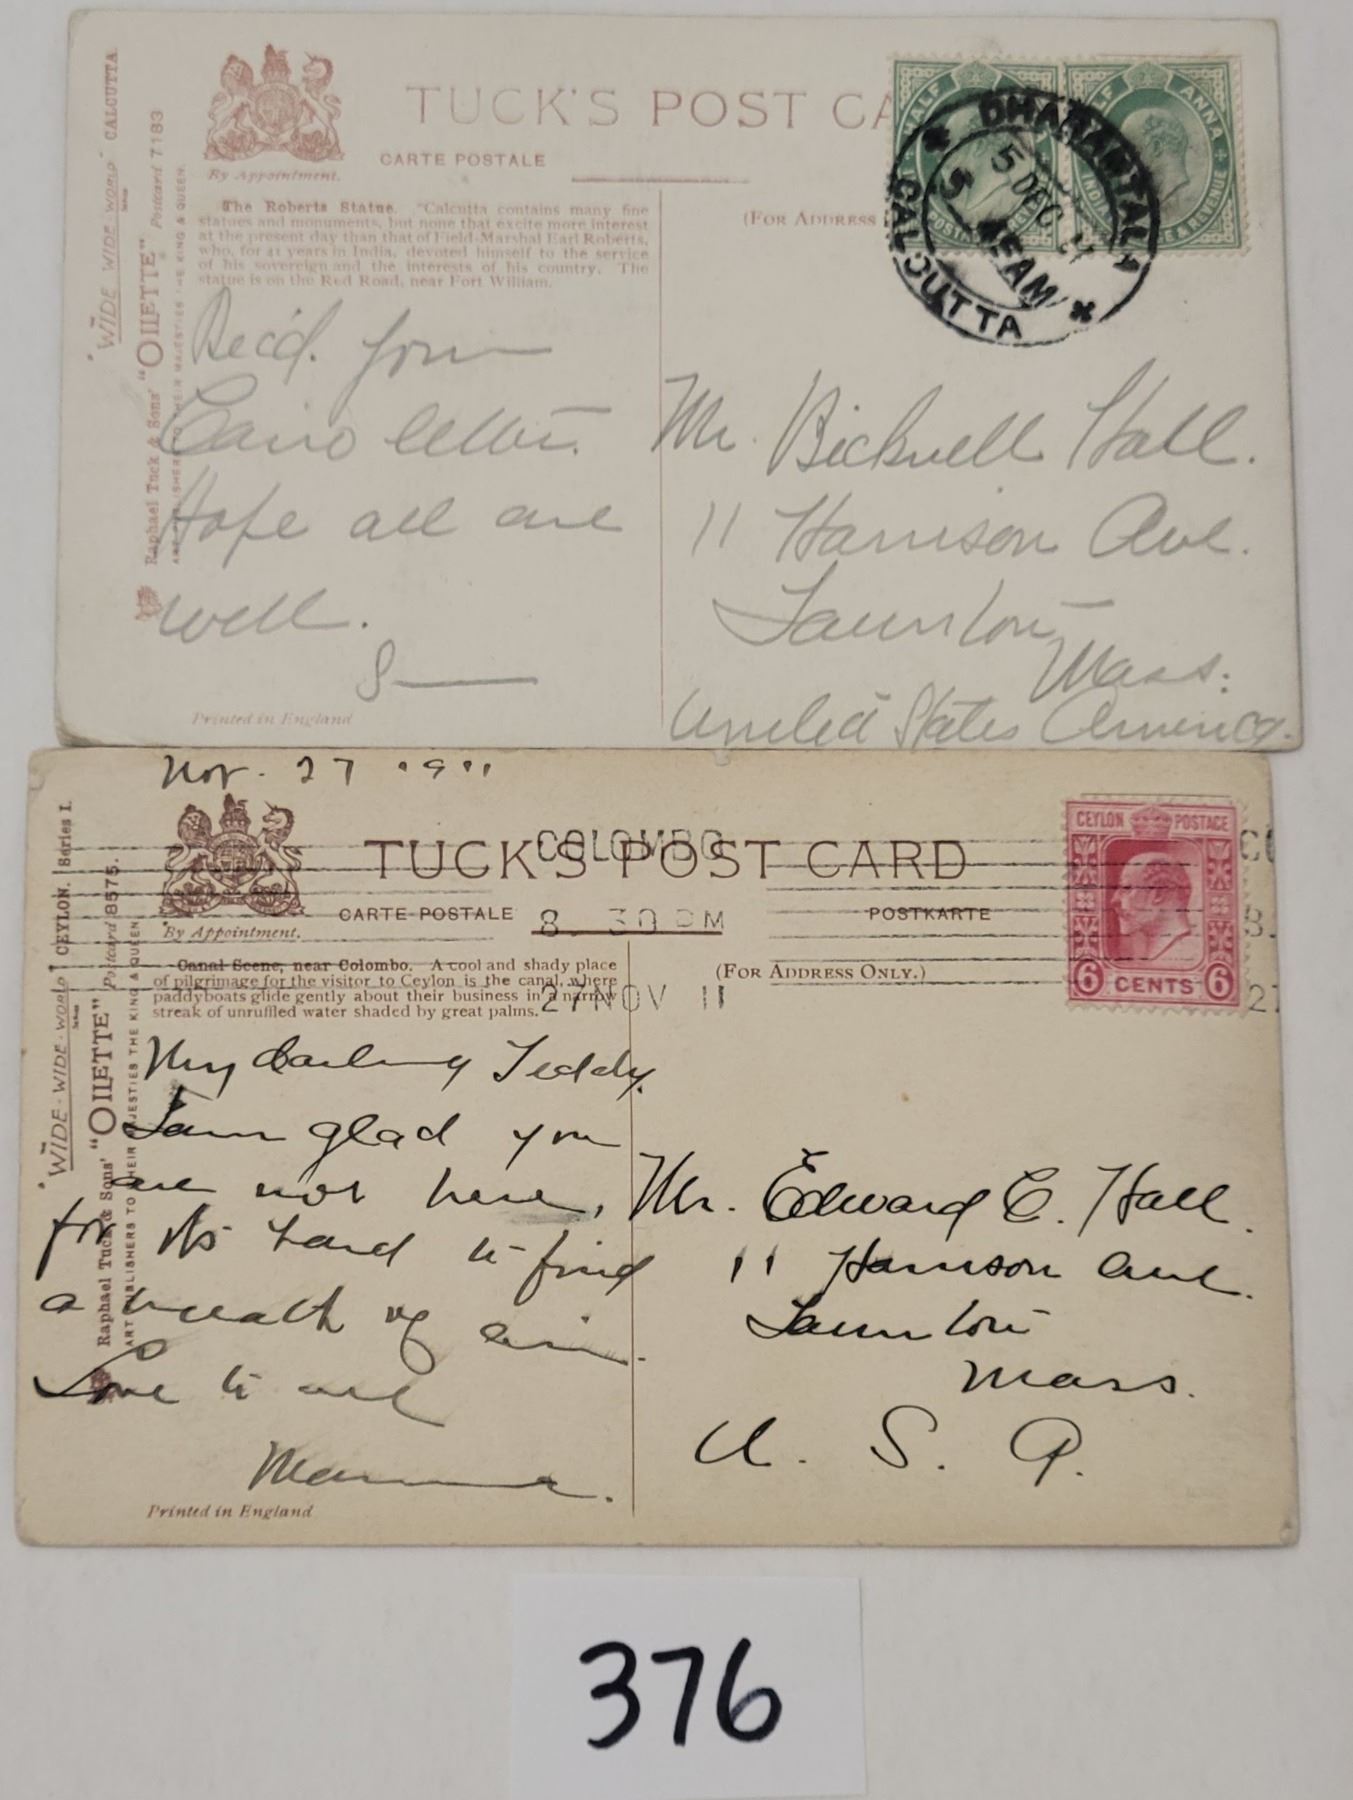 "WIDE WIDE WORLD" CALCUTTA
Raphael Tuck & Sons' "OILETTE" Postcard 7183
ART PUBLISHERS TO THEIR MAJESTIES THE KING & QUEEN.
TUCK'S POST CA
CARTE POSTALE
By Appointment.
HALF ANNA
INDIA POSTAGE & REVENUE
DHARAMTALA
5 DEC 11
5
CALCUTTA
The Roberts Statue. "Calcutta contains many fine
statues and monuments, but none that excite more interest
at the present day than that of Field-Marshal Earl Roberts,
who, for 41 years in India, devoted himself to the service
of his sovereign and the interests of his country. The
statue is on the Red Road, near Fort William.
(FOR ADDRESS
Rec'd. your
Cairo letter.
Hope all are
well.
S
Mr. Bicknell Hall.
11 Harrison Ave.
Taunton
Mass.
United States America.
Printed in England
Nov. 27 1911
"WIDE-WIDE-WORLD" CEYLON. Series I.
Raphael Tuck & Sons' "OILETTE" Postcard 8575.
ART PUBLISHERS TO THEIR MAJESTIES THE KING & QUEEN.
TUCK'S POST CARD
CARTE POSTALE
POSTKARTE
By Appointment.
COLOMBO
8. 30 PM
27 NOV 11
CEYLON POSTAGE
6 CENTS 6
Canal Scene, near Colombo. A cool and shady place
of pilgrimage for the visitor to Ceylon is the canal, where
paddyboats glide gently about their business in a narrow
streak of unruffled water shaded by great palms.
(FOR ADDRESS ONLY.)
My darling Teddy.
I am glad you
are not here,
for its hard to find
a breath of air.
Love to all
Mamma.
Mr. Edward C. Hall.
11 Harrison Ave.
Taunton
Mass.
U. S. A.
Printed in England
376